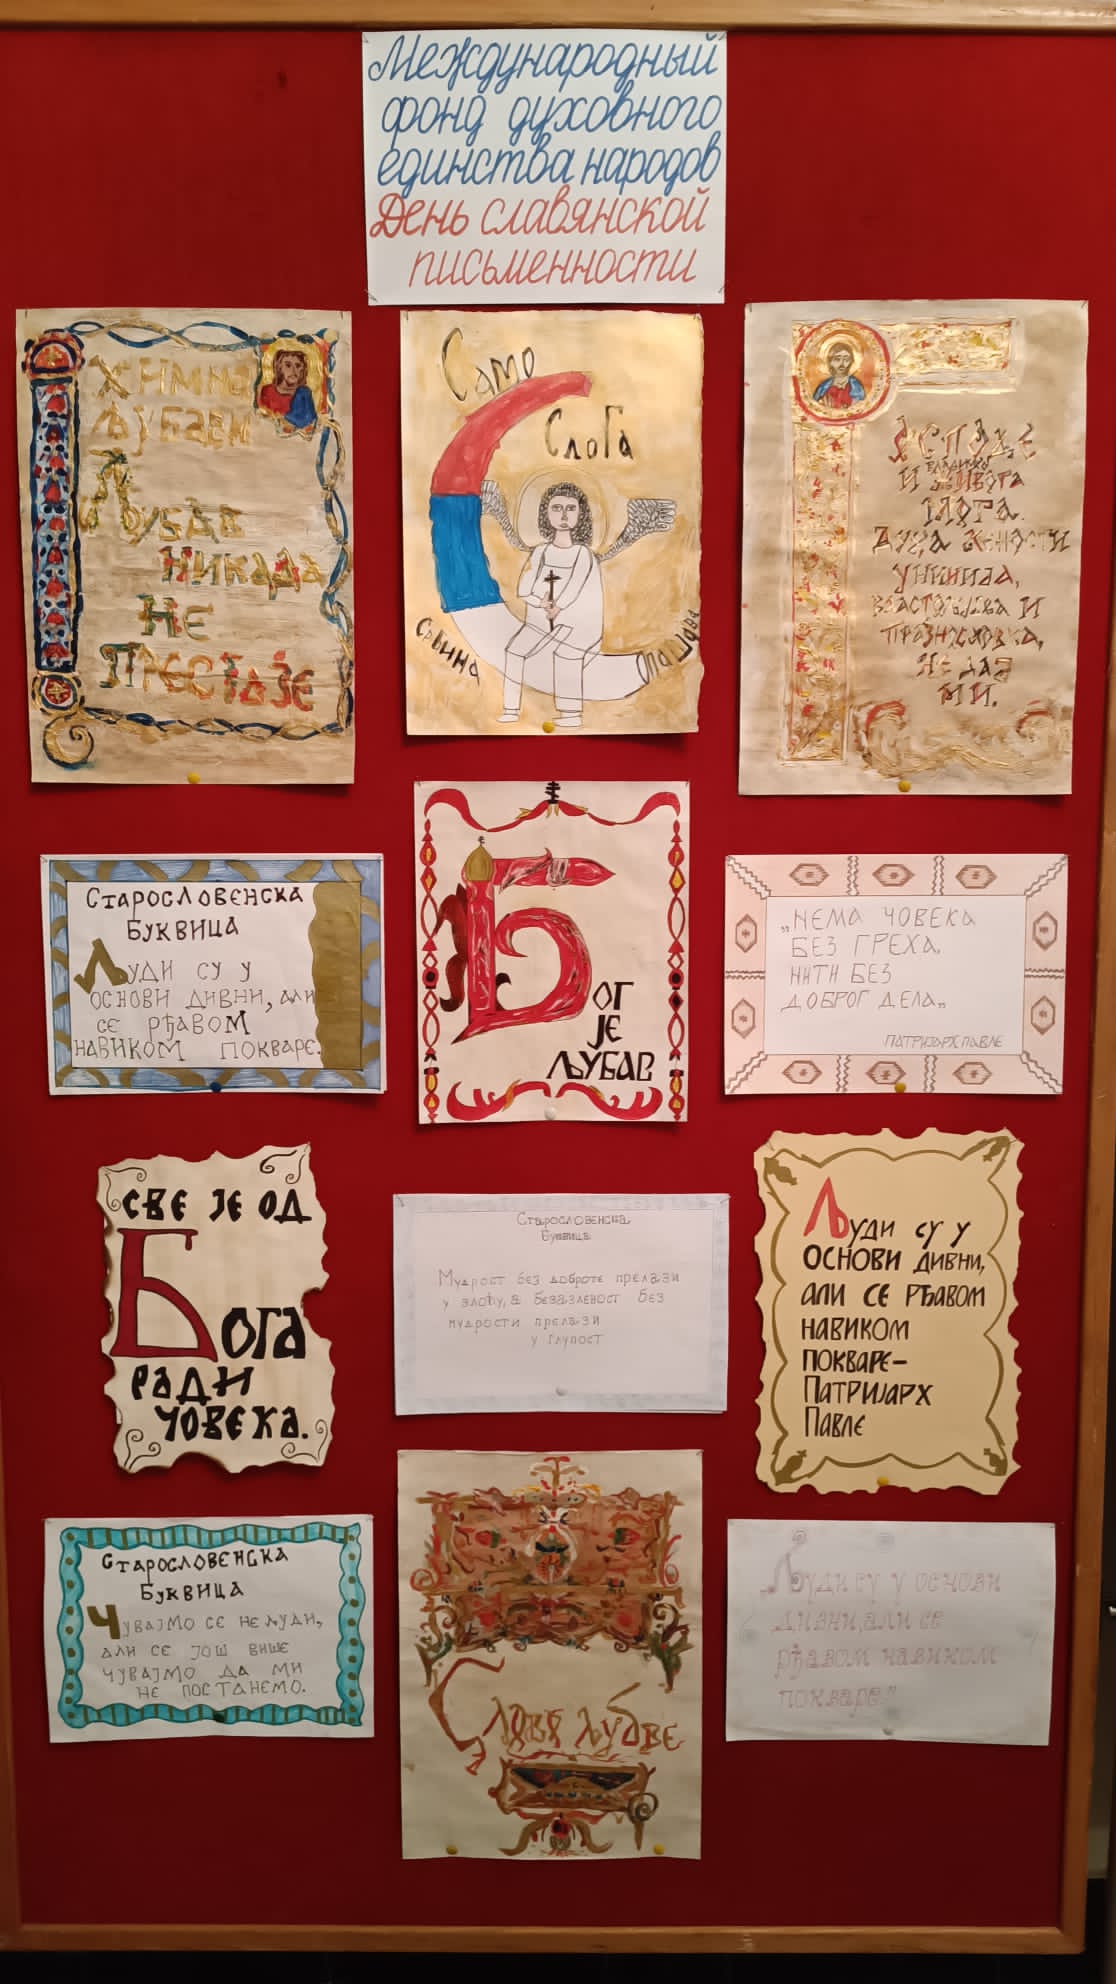 Международный
фонд духовного
единства народов
День славянской
письменности
Химна
љубави
Љубав
никада
не
престаје
Само
Слога
Србина
спашава
Господе
и владико
живота
мога.
Духа леност
унинија,
властољубља и
празнословља,
не дај
ми.
Старословенска
буквица
Људи су у
основи дивни, али
се рђавом
навиком покваре.
Бог
је
љубав
„Нема човека
без греха,
нити без
доброг дела„
Патријарх Павле
Све је од
Бога
ради
човека.
Старословенска
буквица
Мудрост без доброте прелази
у злоћу, а безазленост без
мудрости прелази
у глупост
Људи су у
основи дивни,
али се рђавом
навиком
покваре–
Патријарх
Павле
Старословенска
буквица
Чувајмо се нељуди,
али се још више
чувајмо да ми
не постанемо.
Слово љубве
Људи су у основи
дивни, али се
рђавом навиком
покваре."